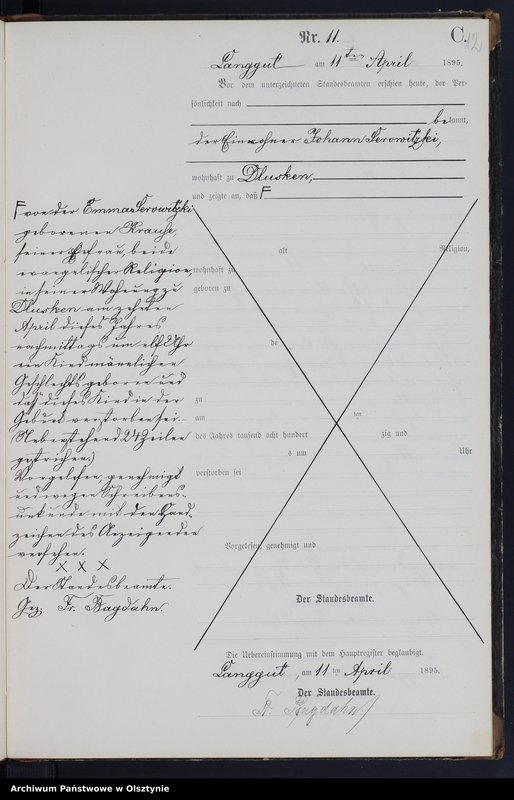 Nr. 11.
C.
12
Langgut am 11ten April 1895.
Vor dem unterzeichneten Standesbeamten erschien heute, der Per-
sönlichkeit nach
bekannt,
der Einwohner Johann Serowitzki,
wohnhaft zu Dlusken,
und zeigte an, daß F
F von der Emma Serowitzki
geborenen Krause,
seiner Ehefrau, beide
evangelischer Religion,
in seiner Wohnung zu
Dlusken am zehnten
April dieses Jahres
nachmittags um elf Uhr
ein Kind männlichen
Geschlechts geboren und
daß dieses Kind in der
Geburt verstorben sei.
(Nebenstehend 24 Zeilen
gestrichen.)
Vorgelesen, genehmigt
und wegen Schreibens-
unkunde mit den Hand-
zeichen des Anzeigenden
versehen.
X X X
Der Standesbeamte.
Gez. Fr. Bagdahn.
alt Religion,
wohnhaft zu
geboren zu
de
zu
am ten
des Jahres tausend acht hundert zig und
s um Uhr
verstorben sei
Vorgelesen, genehmigt und
Der Standesbeamte.
Die Uebereinstimmung mit dem Hauptregister beglaubigt.
Langgut, am 11ten April 1895.
Der Standesbeamte.
Fr. Bagdahn
Archiwum Państwowe w Olsztynie